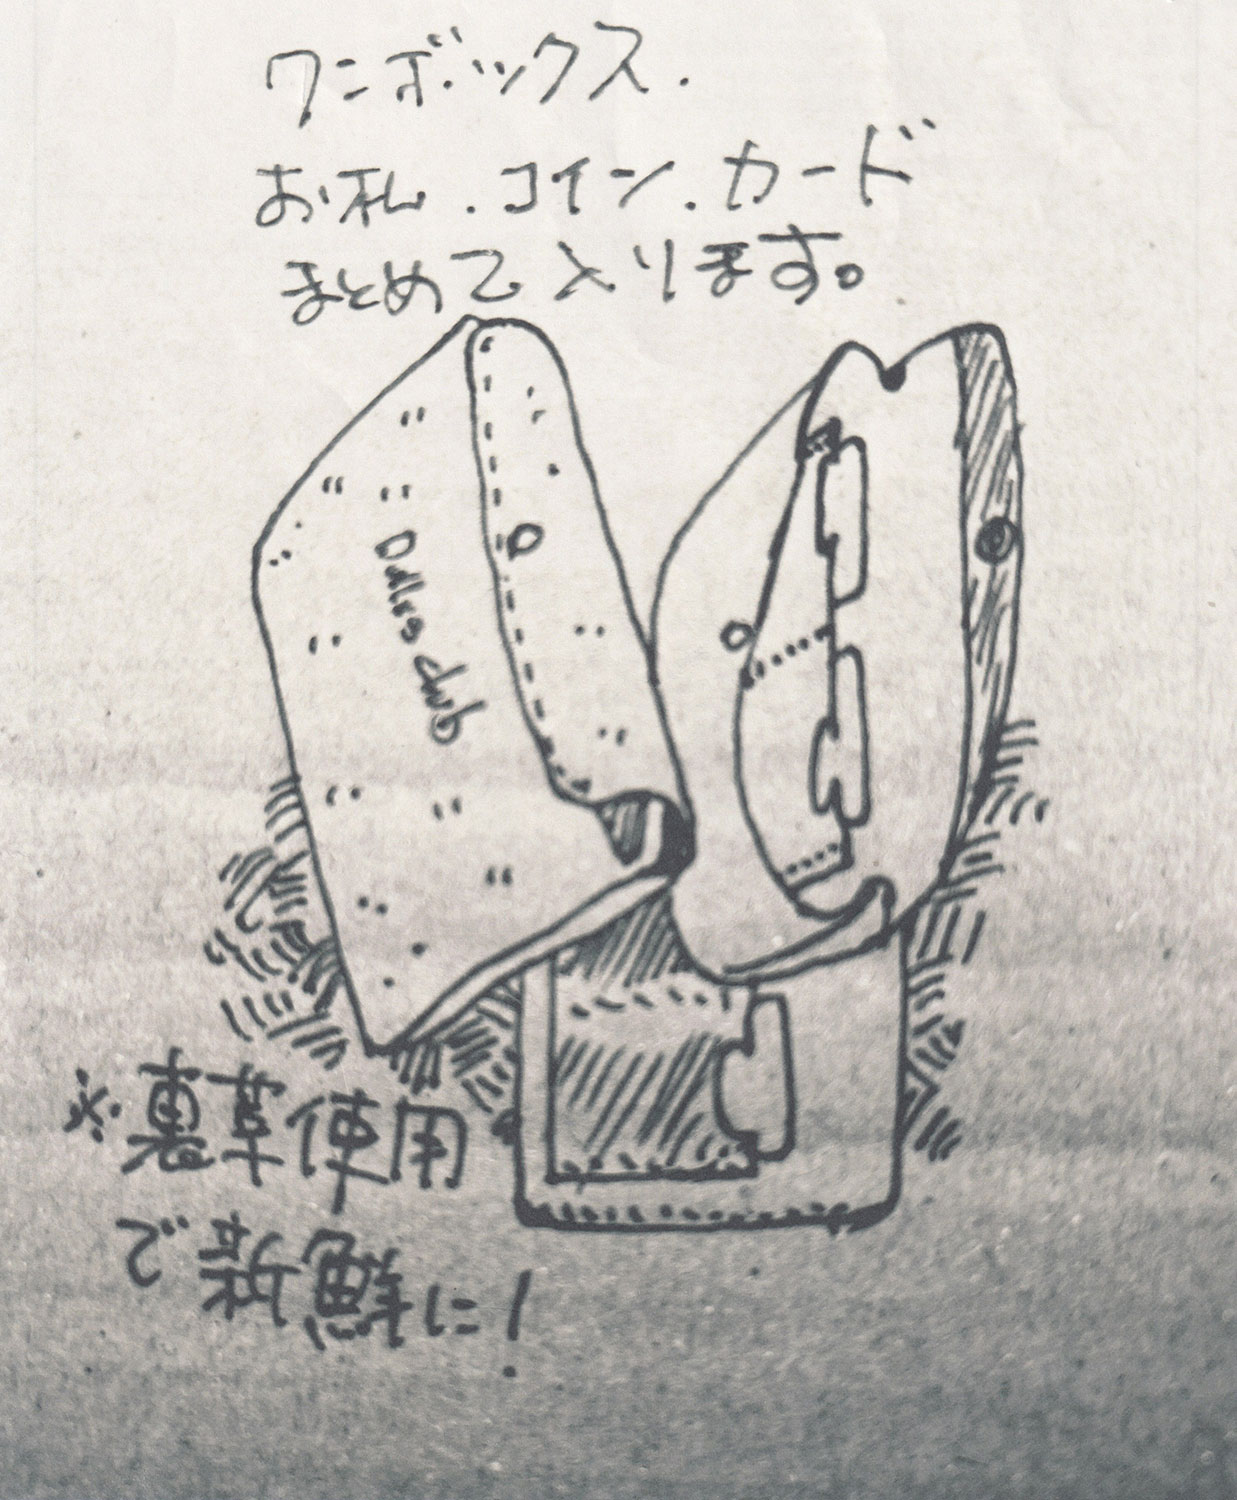 ワンボックス.
お札.コイン.カード
まとめて入ります。
Dallas club
※裏革使用
で新鮮に!